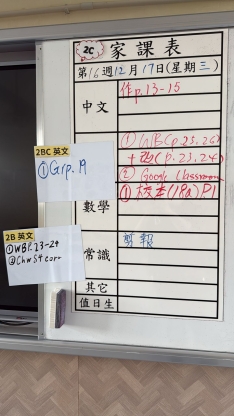 2C 家課表
第16週12月17日(星期三)
中文 作p.13-15
① WB(p.23,24)
2BC 英文
① Grp. A
② Google Classroom
數學 ①校本(18a)P1
2B 英文
①WBP.23-24
常識 剪報
其它
值日生